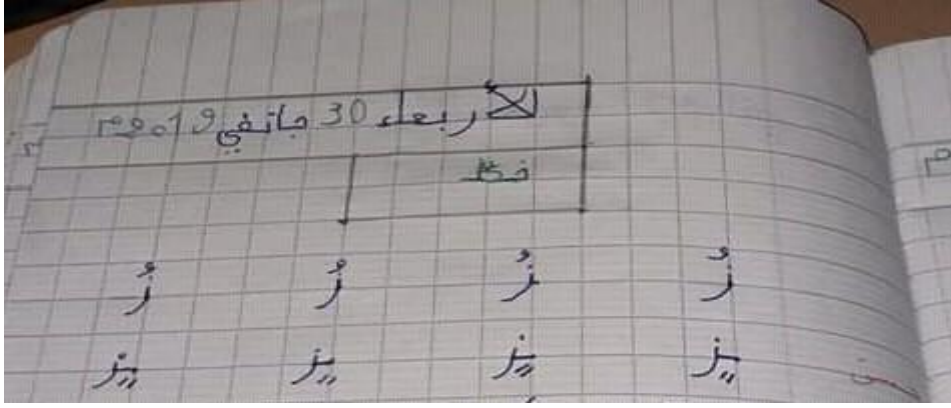 الأربعاء 30 جانفي 2019م
خط
زُ زُ زُ زُ
ـزٍ ـزٍ ـزٍ ـزٍ